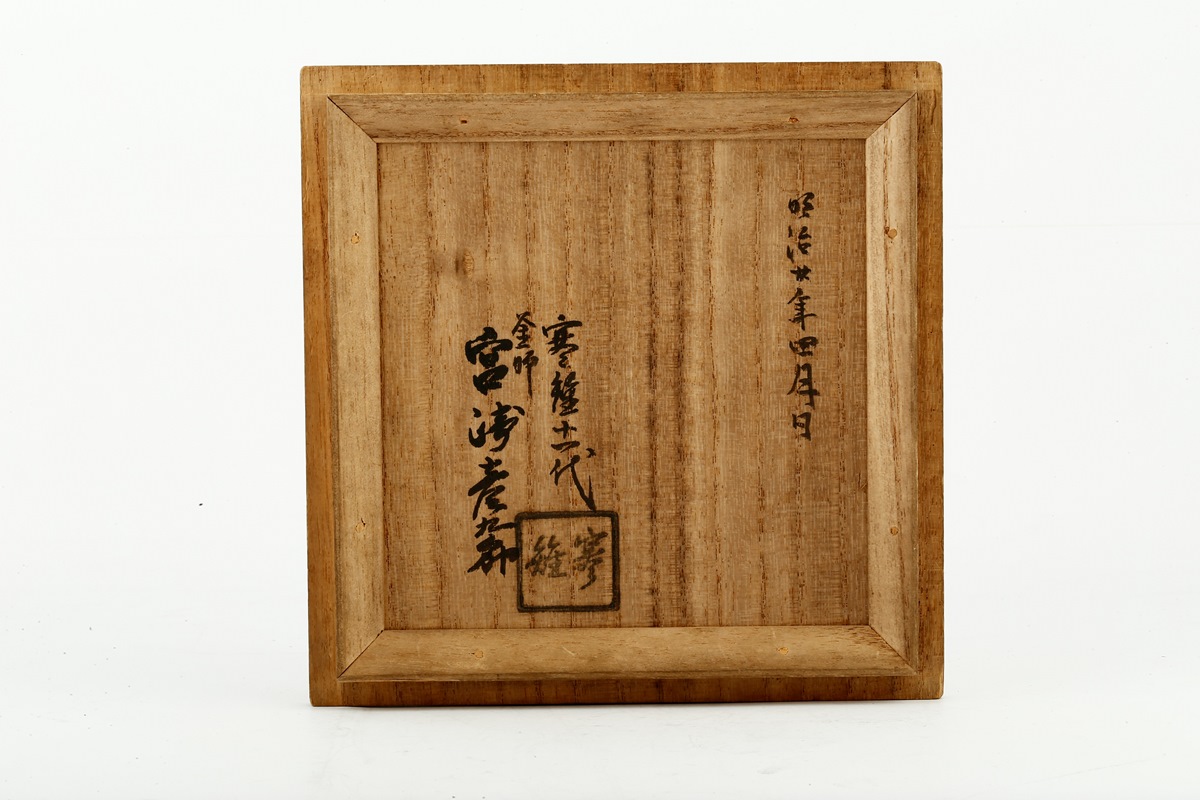 明治廿年四月日
寒雉十一代
釜師
宮﨑彦九郎
寒雉